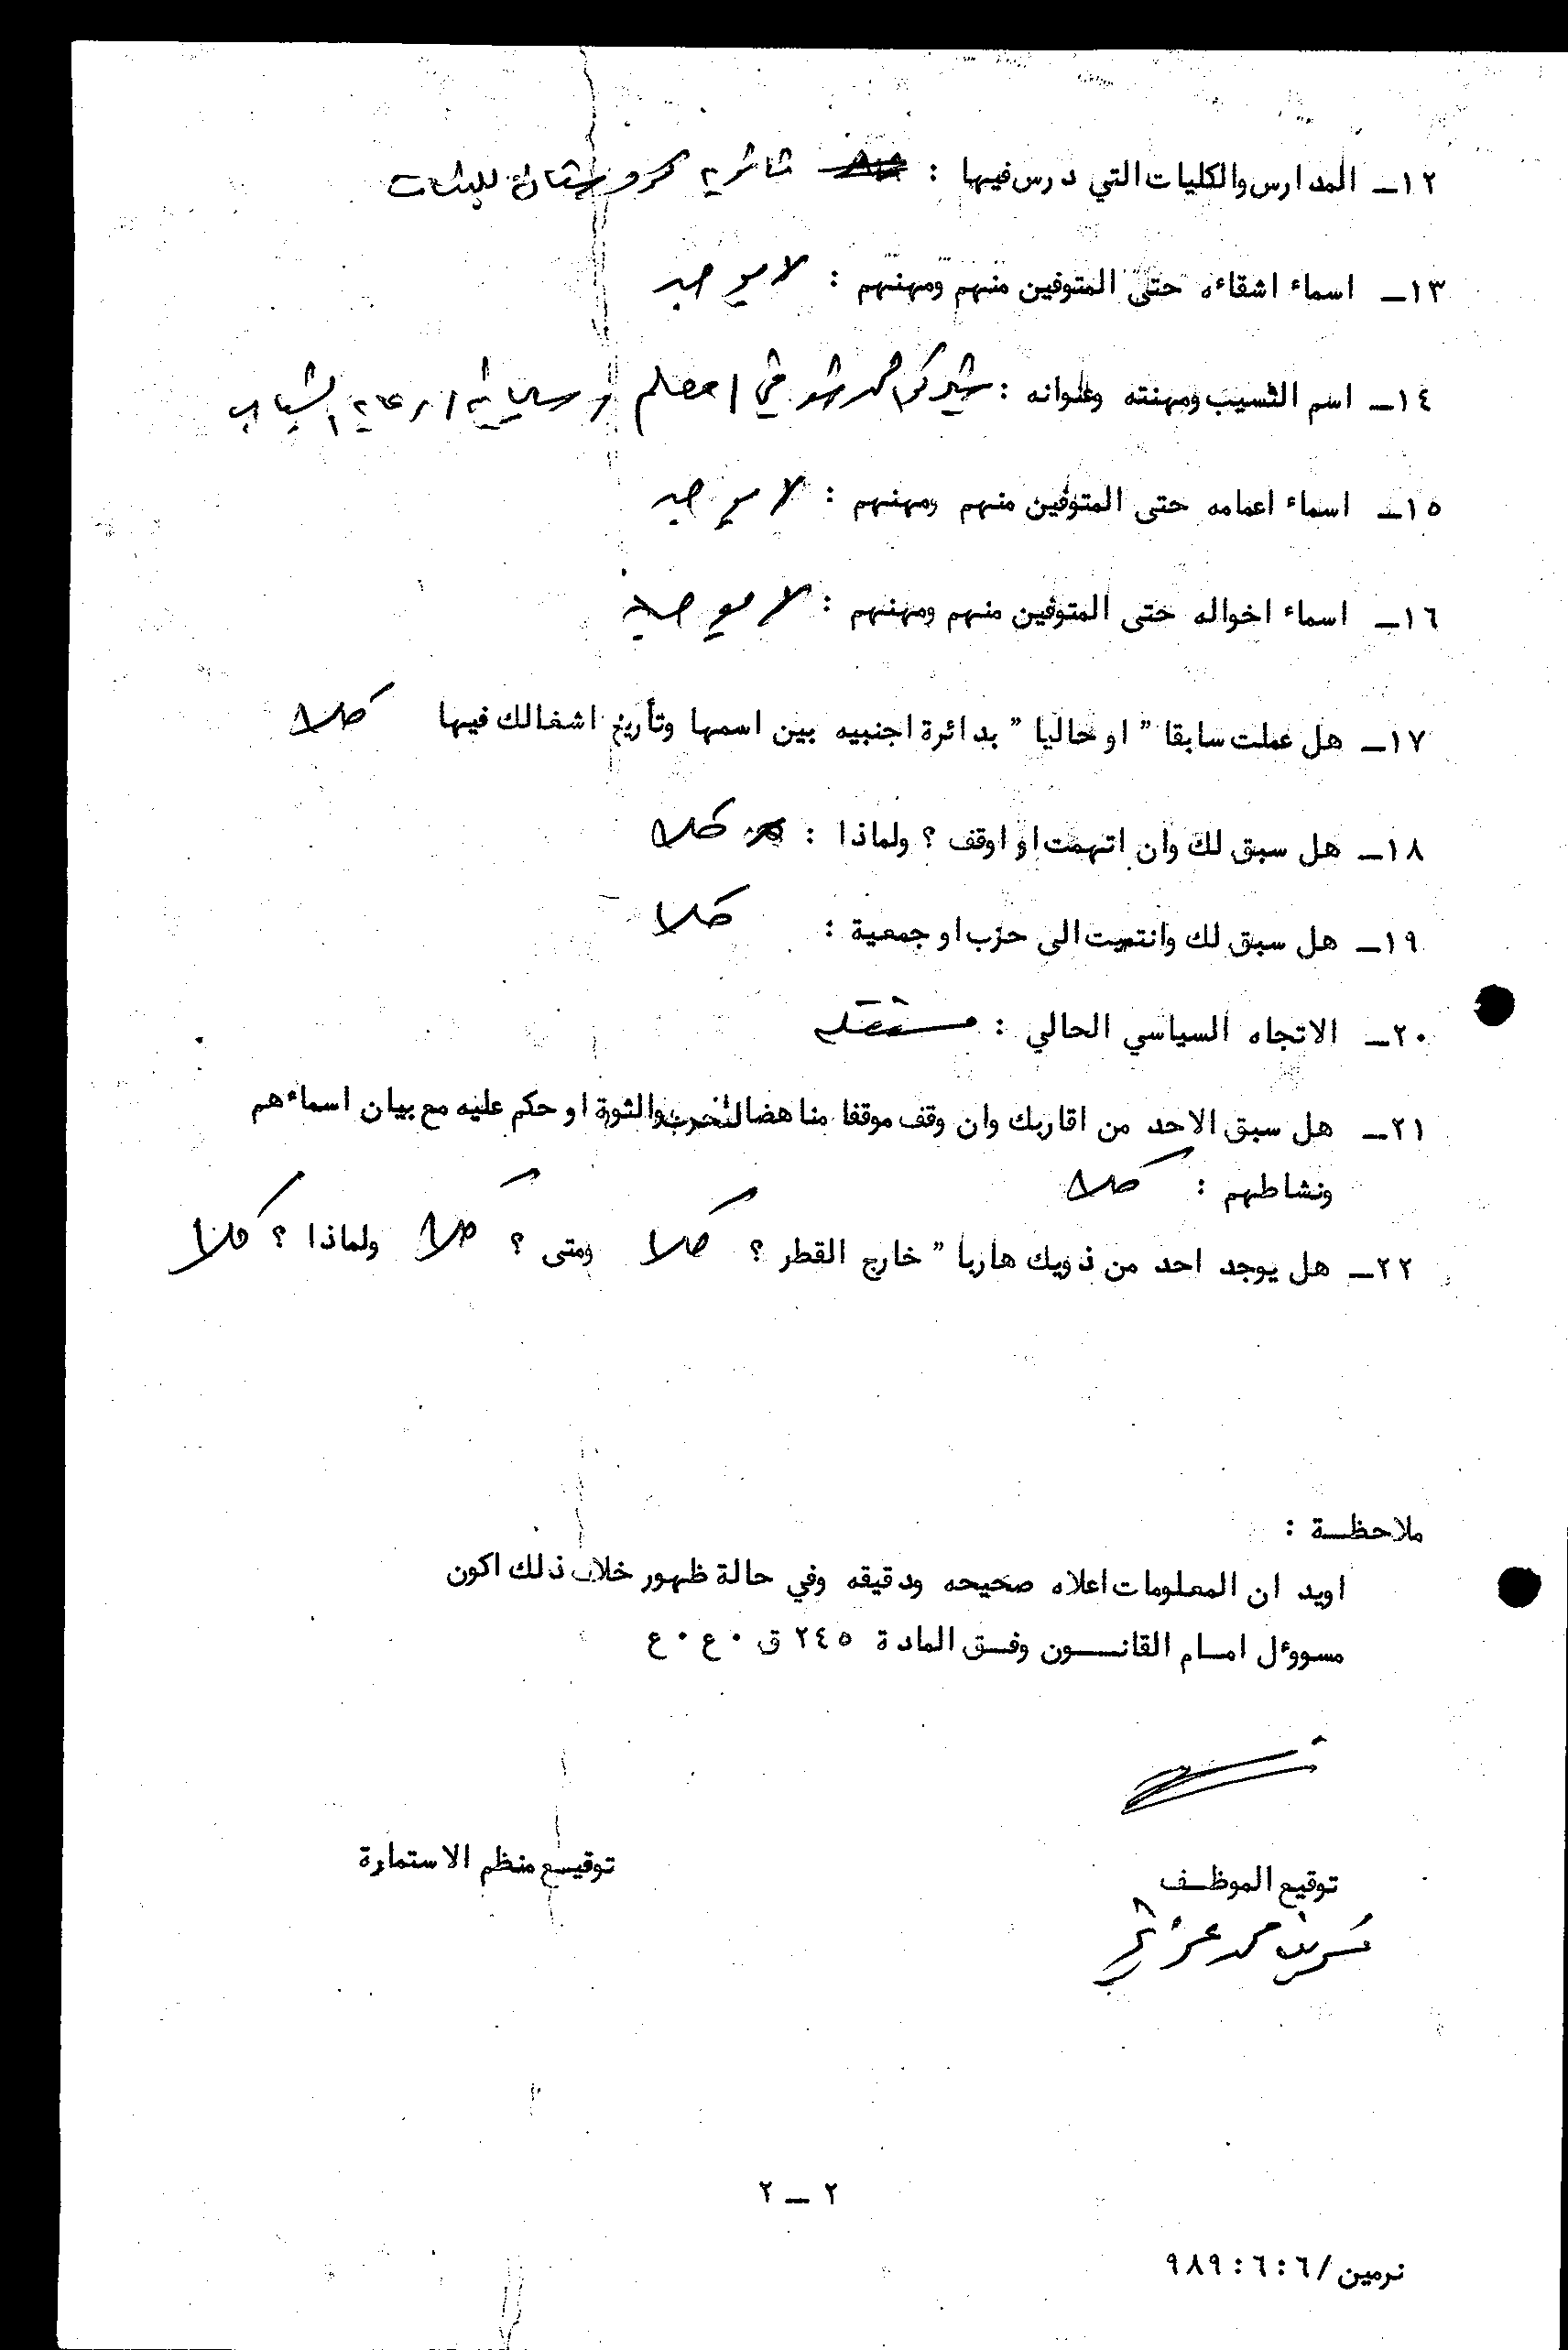 ١٢ـ المدارس والكليات التي درس فيها : ثانوية كردستان للبنات
١٣ـ اسماء اشقاءه حتى المتوفين منهم ومهنهم : لا يوجد
١٤ـ اسم النسيب ومهنته وعنوانه : شيركو شوقي / معلم / سليمانية / رعاية الشباب
١٥ـ اسماء اعمامه حتى المتوفين منهم ومهنهم : لا يوجد
١٦ـ اسماء اخواله حتى المتوفين منهم ومهنهم : لا يوجد
١٧ـ هل عملت سابقا " او حاليا " بدائرة اجنبيه بين اسمها وتأريخ اشغالك فيها كلا
١٨ـ هل سبق لك وان اتهمت او اوقف ؟ ولماذا : كلا
١٩ـ هل سبق لك وانتميت الى حزب او جمعية : كلا
٢٠ـ الاتجاه السياسي الحالي : مستقل
٢١ـ هل سبق الاحد من اقاربك وان وقف موقفا مناهضا للحزب والثورة او حكم عليه مع بيان اسماءهم
ونشاطهم : كلا
٢٢ـ هل يوجد احد من ذويك هاربا " خارج القطر ؟ كلا ومتى ؟ كلا ولماذا ؟ كلا
ملاحظــة :
اويد ان المعلومات اعلاه صحيحه ودقيقه وفي حالة ظهور خلاف ذلك اكون
مسووٴل امــام القانــــون وفــق المادة ٢٤٥ ق ٠ ع ٠ ع
توقيع الموظــف
توقيــع منظم الاستمارة
نسرين محمد عزيز
٢ ــ ٢
نرمين / ٦ : ٦ : ٩٨٩